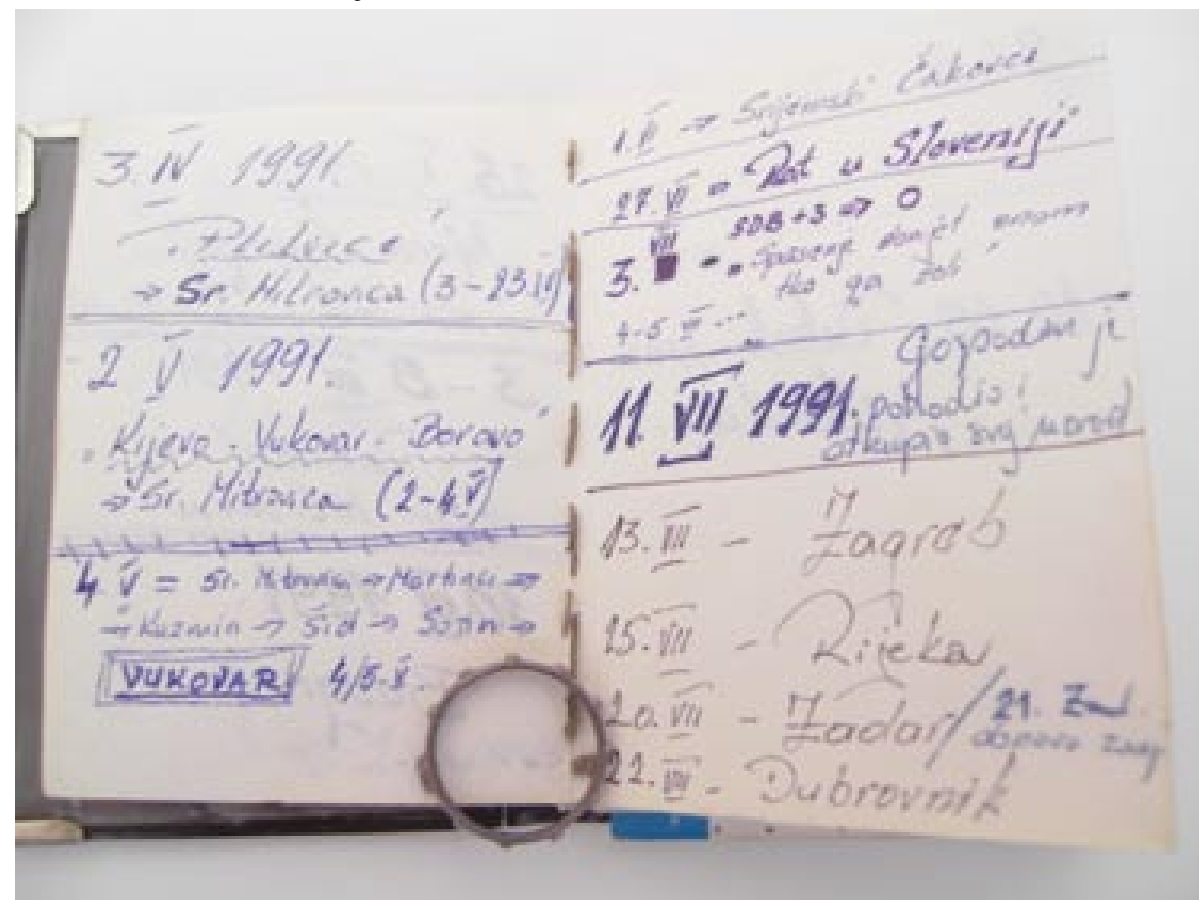 3. IV 1991.
"Plitvice"
→ Sr. Mitrovica (3-23.IV)
2 V 1991.
"Kijevo - Vukovar - Borovo"
→ Sr. Mitrovica (2-4.V)
4. V = Sr. Mitrovica → Martinci →
→ Kuzmin → Šid → Sotin →
VUKOVAR 4/5.V.
1. VI → Srijemski Čakovci
27. VI = Rat u Sloveniji
3. VII - SDB +3 ⇒ O
tko ga
4-5 VII ...
11. VII 1991. Gospodin je
pohodio i
otkupio svoj narod
13. VII - Zagreb
15. VII - Rijeka
20. VII - Zadar / 21.
22. VII - Dubrovnik